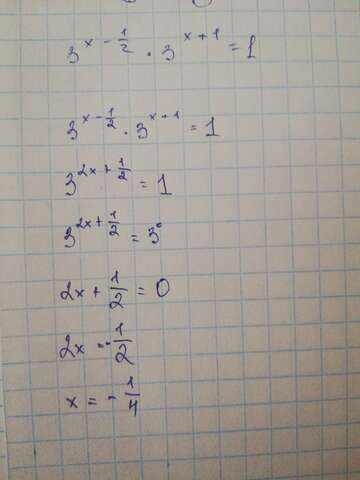 3^{x - \frac{1}{2}} · 3^{x + 1} = 1
3^{x - \frac{1}{2}} · 3^{x + 1} = 1
3^{2x + \frac{1}{2}} = 1
3^{2x + \frac{1}{2}} = 3^{0}
2x + \frac{1}{2} = 0
2x = -\frac{1}{2}
x = -\frac{1}{4}